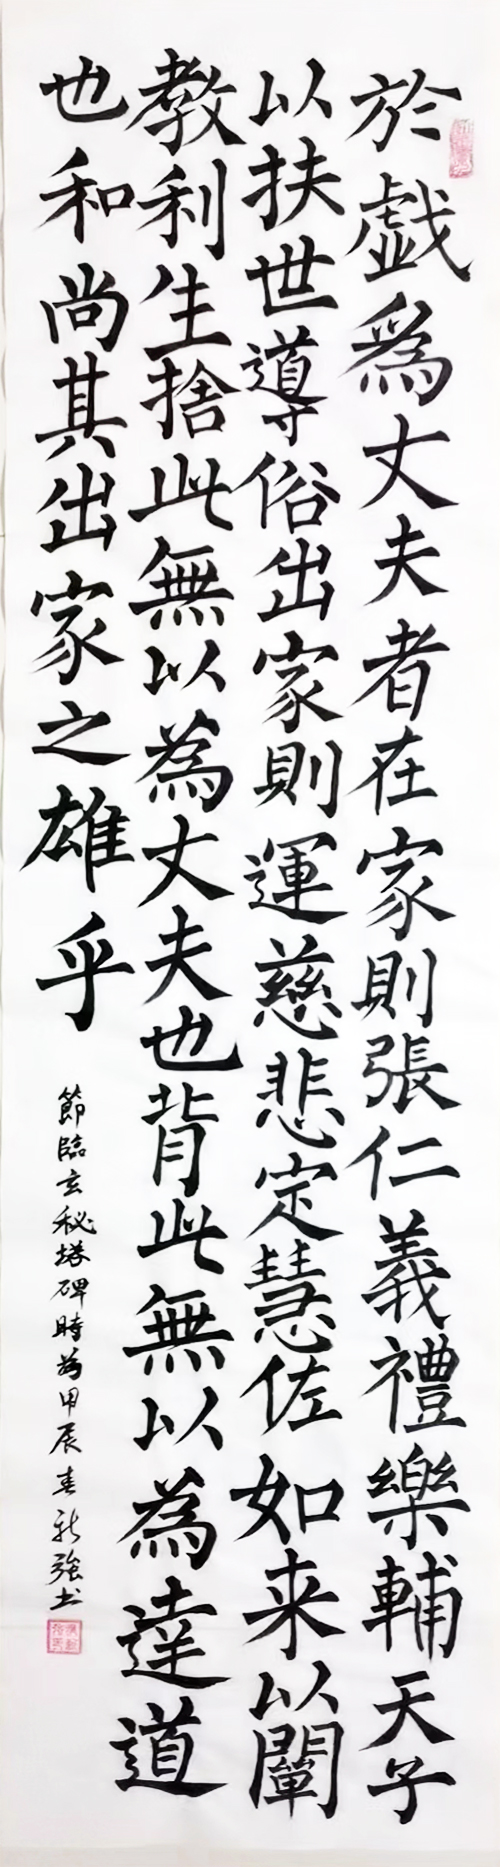 於戯爲丈夫者在家則張仁義禮樂輔天子
以扶世導俗出家則運慈悲定慧佐如来以闡
教利生捨此無以為丈夫也背此無以為達道
也和尚其出家之雄乎
節臨玄秘塔碑時為甲辰春新強书